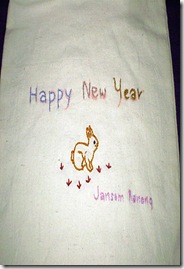 Happy New Year
Jansom Ranong